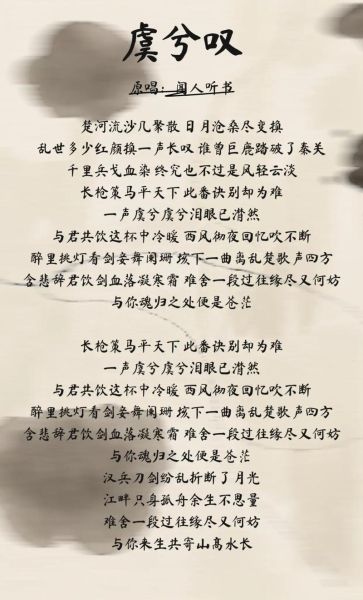 虞兮叹
原唱：闻人听书
楚河流沙几聚散 日月沧桑尽变换
乱世多少红颜换一声长叹 谁曾巨鹿踏破了秦关
千里兵戈血染 终究也不过是风轻云淡
长枪策马平天下 此番诀别却为难
一声虞兮虞兮泪眼已潸然
与君共饮这杯中冷暖 西风彻夜回忆吹不断
醉里挑灯看剑妾舞阑珊 垓下一曲离乱楚歌声四方
含悲辞君饮剑血落凝寒霜 难舍一段过往缘尽又何妨
与你魂归之处便是苍茫
长枪策马平天下 此番诀别却为难
一声虞兮虞兮泪眼已潸然
与君共饮这杯中冷暖 西风彻夜回忆吹不断
醉里挑灯看剑妾舞阑珊 垓下一曲离乱楚歌声四方
含悲辞君饮剑血落凝寒霜 难舍一段过往缘尽又何妨
与你魂归之处便是苍茫
汉兵刀剑纷乱折断了月光
江畔只身孤舟余生不思量
难舍一段过往缘尽又何妨
与你来生共寄山高水长